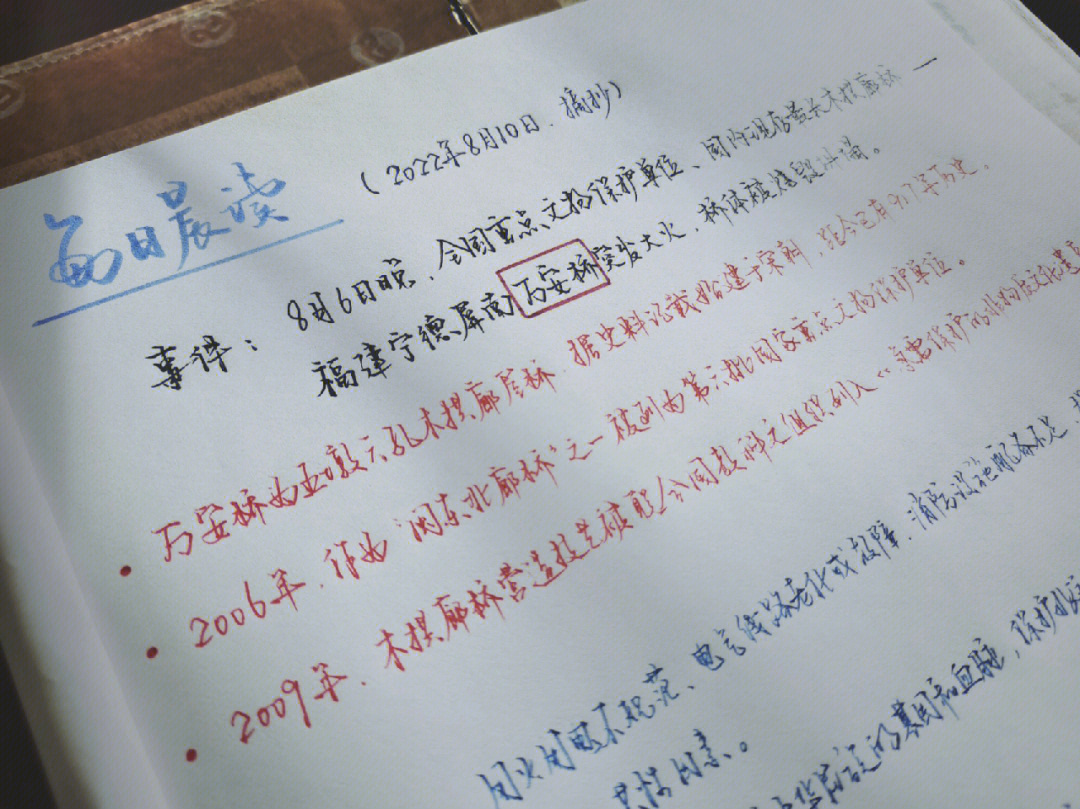 每日晨读
(2022年8月10日．摘抄)
事件： 8月6日晚，全国重点文物保护单位、国内现存最长木拱廊桥 —
福建宁德屏南万安桥突发大火，桥体被烧毁坍塌。
• 万安桥为五墩六孔木拱廊屋桥．据史料记载始建于宋朝，距今已有917年历史．
• 2006年．作为“闽东北廊桥”之一被列为第六批国家重点文物保护单位。
• 2009年．木拱廊桥营造技艺被联合国教科文组织列入《急需保护的非物质文化遗
用火用电不规范、电气线路老化或故障、消防设施配备不足，
共性因素。
华民族的基因和血脉，保护